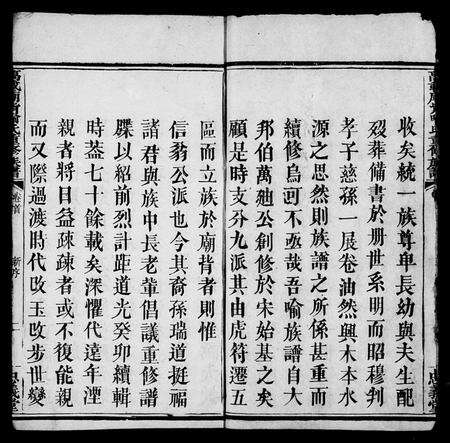 收矣統一族尊卑長幼與夫生配
殁葬備書於册世系明而昭穆判
孝子慈孫一展卷油然興木本水
源之思然則族譜之所係甚重而
續修烏可不亟哉吾喻族譜自大
邦伯萬虵公創修於宋始基之矣
顧是時支分九派其由虎符遷五
區而立族於廟背者則惟
信翁公派也今其裔孫瑞道挺福
諸君與族中長老輩倡議重修譜
牒以紹前烈計距道光癸卯續輯
時葢七十餘載矣深懼代遠年湮
親者將日益疎疎者或不復能親
而又際過渡時代改玉改步世變
卷首
新序
一